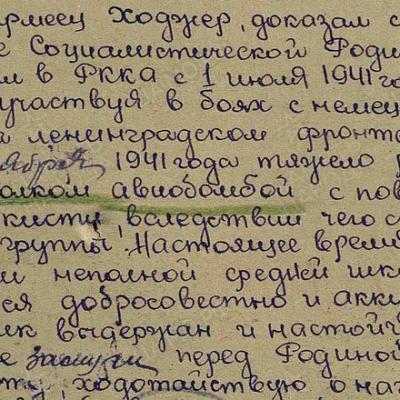 рмеец Ходжер, доказал с
е Социалистической Роди
м в РККА с 1 июля 1941 го
участвуя в боях с немец
а ленинградском фронте
ября 1941 года тяжело
олком авиобомбой с пов
кисти, вследствии чего с
группы. Настоящее время
и неполной средней шк
ся добросовестно и акк
ик выдержан и настойч
е заслуги перед Родиной
ту, ходотайствую о наг